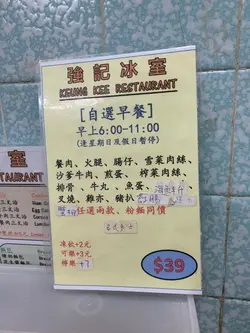 強記冰室
KEUNG KEE RESTAURANT
[自選早餐]
早上6:00-11:00
(逢星期日及假日暫停)
餐肉、火腿、腸仔、雪菜肉絲、
沙爹牛肉、煎蛋、榨菜肉絲、
排骨、牛丸、魚蛋、
叉燒、雞亦、豬扒
任選兩款、粉麵同價
凍飲+2元
可樂+3元
檸樂+7
$39
室
RESTAURANT